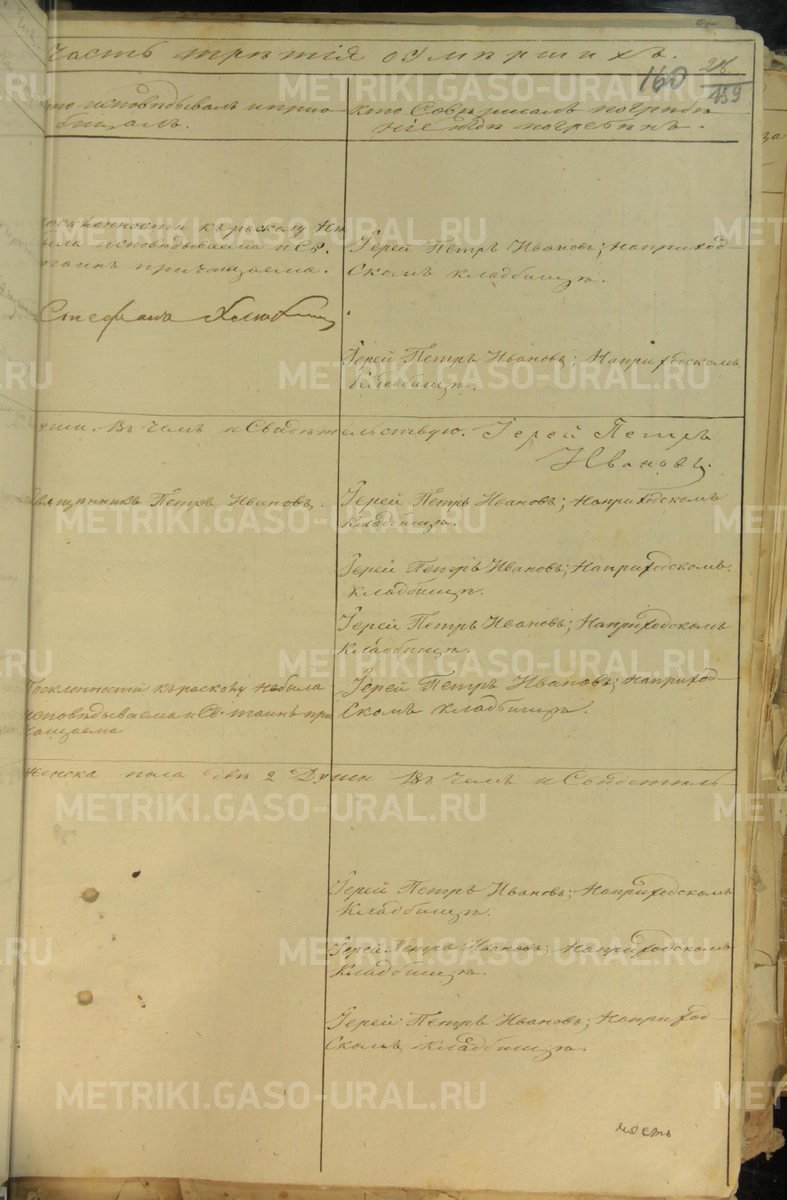 Часть третія оумершихъ.
160
28
159
кто исповѣдывалъ и прио-
бщалъ.
кто Совершалъ погребе-
ніе и гдѣ погребенъ.
склонности къ расколу не
была исповѣдываема и Св.
таинъ причащаема.
Іерей Петръ Ивановъ; На приход-
скомъ кладбищѣ.
Стефанъ
Іерей Петръ Ивановъ; На приходскомъ
Кладбищѣ.
души. Въ чемъ и Свидѣтельствую. Іерей Петръ
Ивановъ.
Священникъ Петръ Ивановъ.
Іерей Петръ Ивановъ; На приходскомъ
кладбищѣ.
Іерей Петръ Ивановъ; На приходскомъ
кладбищѣ.
Іерей Петръ Ивановъ; На приходскомъ
кладбищѣ.
По склонности къ расколу не была
исповѣдываема и Св. таинъ при-
чащаема
Іерей Петръ Ивановъ; На приход-
скомъ кладбищѣ.
женска пола двѣ 2 Души Въ чемъ и Свидѣтель-
Іерей Петръ Ивановъ; На приходскомъ
Кладбищѣ.
Іерей Петръ Ивановъ; На приходскомъ
Кладбищѣ.
Іерей Петръ Ивановъ; На приход-
скомъ кладбищѣ.
METRIKI.GASO-URAL.RU